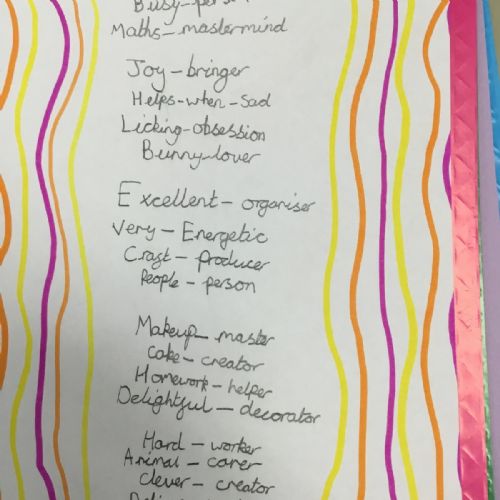 Busy-person
Maths-mastermind
Joy-bringer
Helps-when-sad
Licking-obsession
Bunny-lover
Excellent-organiser
Very-Energetic
Craft-producer
People-person
Makeup-master
Cake-creator
Homework-helper
Delightful-decorator
Hard-worker
Animal-carer
Clever-creator